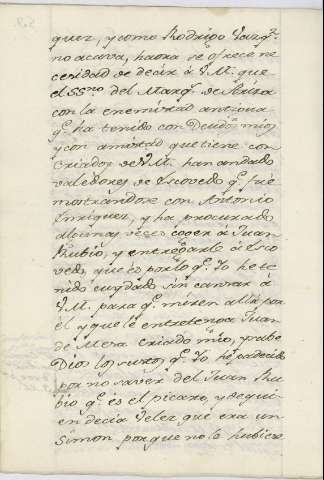 quez, y como Rodrigo Vazqz
no acava, haora se ofrece ne
cesidad de decir à V.M. que
el Ssrio del Marqs de
con la enemistad antigua
qe ha tenido con Deudos mios
y con amistad que tiene con
criados de V.M. han andado
valedores de Escovedo qe fue
mostrandose con Antonio
Enriquez, y ha procurado
algunas veces coger à Juan
Rubio, y entregarlo à Esco
vedo, que es por lo qe Yo he te
nido cuydado sin cansar à
V.M. para qe miren alla por
el y que le entretenga Juan
de Mesa criado mio, y sabe
Dios los sustos qe Yo he padecido
por no saver del Juan Ru
bio qe es el picaro, y de qui
en decia Velez que era un
Simon porque no le hubiese